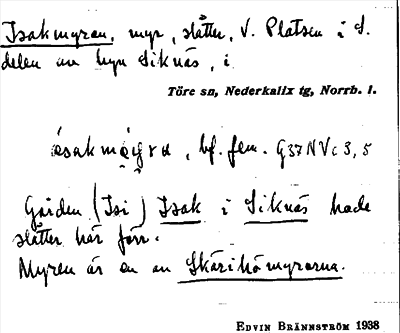 Isakmyran, myr, slåtter, V. Platsen i S.
delen av byn Siknäs, i
Töre sn, Nederkalix tg, Norrb. l.
bf. fem. G37NVc3,5
Gården (Isi) Isak i Siknäs hade
slåtter här förr.
Myren är en av Skärihömyrarna.
EDVIN BRÄNNSTRÖM 1938